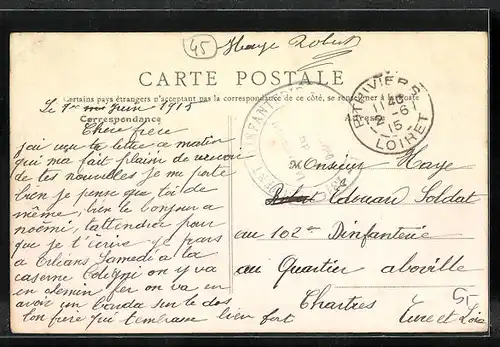 45 Haye Robert
CARTE POSTALE
Certains pays étrangers n'acceptant pas la correspondance de ce côté, se renseigner à la poste
Le 1er Juin 1915
Correspondance
Adresse
PITHIVIERS
11 40
2 - 6
15
LOIRET
Cher frère
jai reçu ta lettre ce matin
qui ma fait plaisir de recevoir
de tes nouvelles je me porte
bien je pense que toi de
même, bien le bonjour a
noémi,
que je t'écrive je pars
a Orléans Samedi a la
caserne Coligny on y va
en chemin fer on va en
avoir un barda sur le dos
ton frère qui tembrasse bien fort
Monsieur Haye
Edouard Soldat
au 102me Dinfanterie
au Quartier aboville
Chartres
Eure et Loir